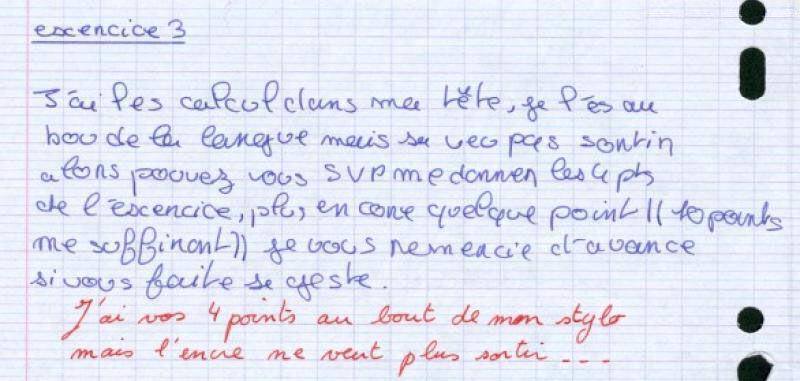 excencice 3
J'ai les calcul dans ma tête, je l'es au
bou de la langue mais sa veo pas sortir
alors pouvez vous SVP me donner les 4 pts
de l'excencice, plus encore quelque point ((10 points
me suffiront)) je vous remercie d'avance
si vous faite se geste.
J'ai vos 4 points au bout de mon stylo
mais l'encre ne veut plus sortir ---